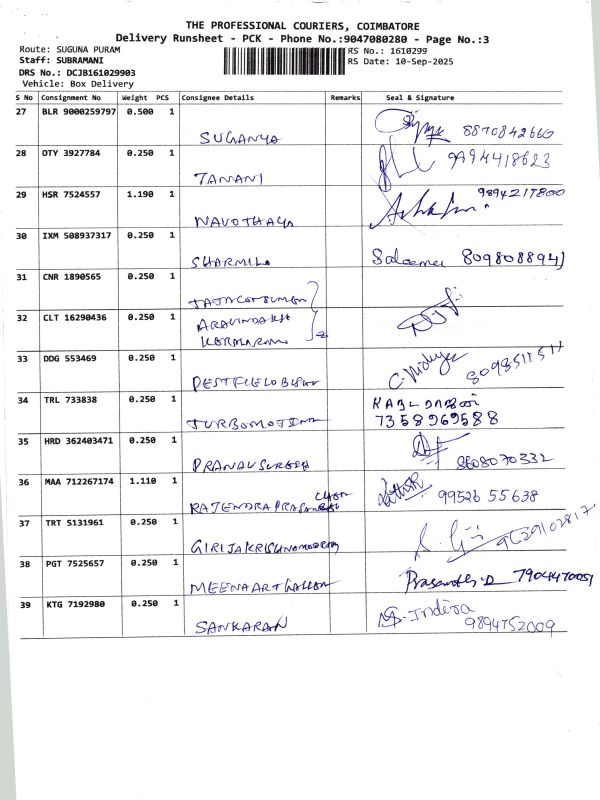 THE PROFESSIONAL COURIERS, COIMBATORE
Delivery Runsheet - PCK - Phone No.:9047080280 - Page No.:3
Route: SUGUNA PURAM
RS No.: 1610299
Staff: SUBRAMANI
RS Date: 10-Sep-2025
DRS No.: DCJB161029903
Vehicle: Box Delivery
S No Consignment No Weight PCS Consignee Details Remarks Seal & Signature
27 BLR 9000259797 0.500 1 SUGANYA 8870842660
28 OTY 3927784 0.250 1 TAMANI 9994418623
29 HSR 7524557 1.190 1 NAVOTHAYA 9894217800
30 IXM 508937317 0.250 1 SHARMILA
31 CNR 1890565 0.250 1
32 CLT 16290436 0.250 1
33 DDG 553469 0.250 1
34 TRL 733838 0.250 1 7358969588
35 HRD 362403471 0.250 1 PRANAV SURESH 8608070332
36 MAA 712267174 1.110 1 99526 55638
37 TRT 5131961 0.250 1 9629102817
38 PGT 7525657 0.250 1 Prasanth.D 7904470051
39 KTG 7192980 0.250 1 SANKARAN Indira 9894752009